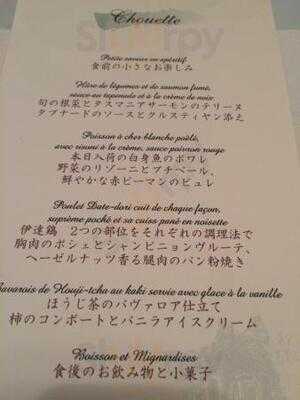 Chouette
Petite saveur en apéritif
食前の小さなお楽しみ
Hûre de légumes et de saumon fumé,
sauce au tapenade et à la crème de noix
旬の根菜とタスマニアサーモンのテリーヌ
タプナードのソースとクルスティヤン添え
Poisson à cher blanche poêlé,
avec risoni à la crème, sauce poivron rouge
本日入荷の白身魚のポワレ
野菜のリゾーニとブナペール、
鮮やかな赤ピーマンのピュレ
Poulet Date-dori cuit de chaque façon,
suprême poché et sa cuiss pané en noisette
伊達鶏 2つの部位をそれぞれの調理法で
胸肉のポシェとシャンピニョンヴルーテ、
ヘーゼルナッツ香る腿肉のパン粉焼き
Bavarois de Houji-tcha au kaki servie avec glace à la vanille
ほうじ茶のバヴァロア仕立て
柿のコンポートとバニラアイスクリーム
Boisson et Mignardises
食後のお飲み物と小菓子